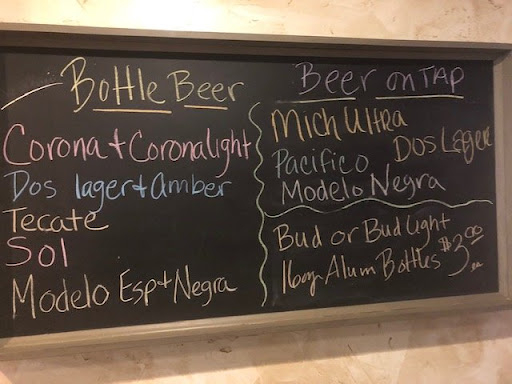 Bottle Beer
Corona + Coronalight
Dos lager + Amber
Tecate
Sol
Modelo Esp + Negra
Beer on TAP
Mich Ultra
Dos Lager
Pacifico
Modelo Negra
Bud or Bud Light
16oz Alum Bottles $3.00 ea